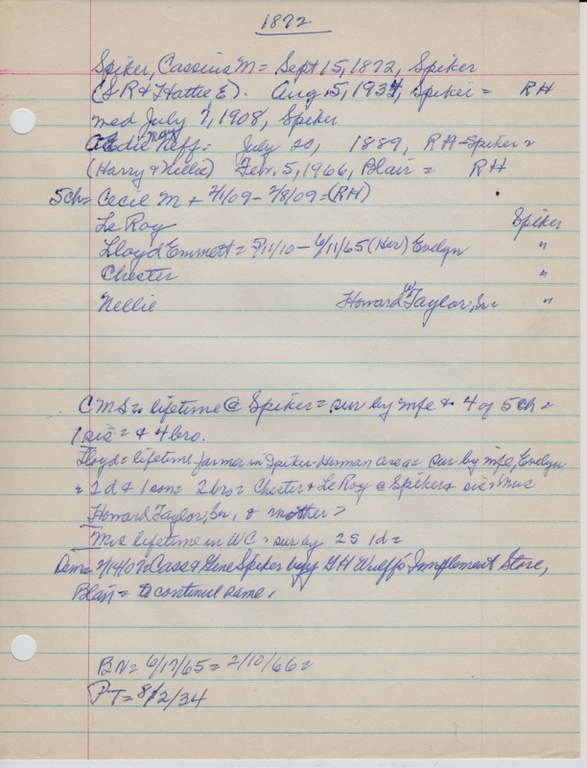 1872
Spiker, Cassius M = Sept 15, 1872, Spiker
(S R & Hattie E). Aug. 5, 1934, Spiker = RH
med July 1, 1908, Spiker
Addie May Neff: July 20, 1889, RH-Spiker =
(Harry & Nellie) Feb. 5, 1966, Blair = RH
5 ch = Cecil M + 2/1/09 - 2/8/09 = (RH)
Le Roy Spiker
Lloyd Emmett = 5/11/10 - 6/11/65 (Her) Evelyn "
Chester "
Nellie Howard W Taylor, Sr = "
C M S = lifetime @ Spiker = sur by wife & 4 of 5 ch =
1 sis = & 4 bro.
Lloyd = lifetime farmer in Spiker-Herman area = sur by wife, Evelyn
= 2 d & 1 son = 2 bros = Chester & Le Roy @ Spiker & sis = Mrs
Howard Taylor, Sr, & mother =
Mrs lifetime in WC = sur by 2 S 1 d =
Cass & Gene Spiker buy G H Wulff's Implement Store,
Blair = to continue same.
BN = 6/17/65 = 2/10/66 =
PT = 8/2/34